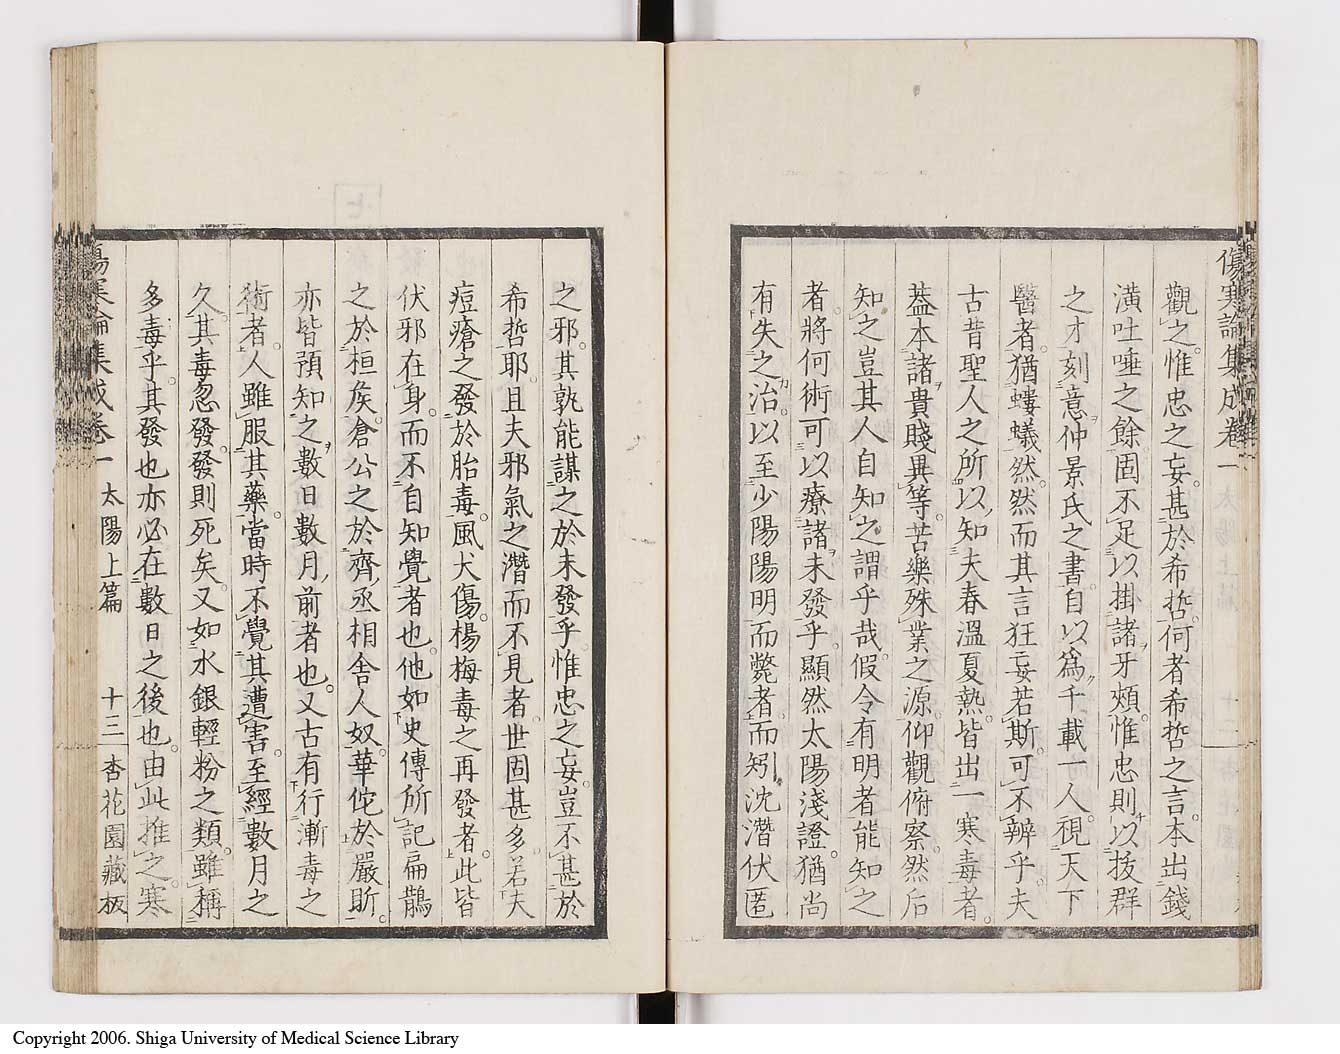 傷寒論集成卷一
觀之惟忠之妄甚於希哲何者希哲之言本出錢
潢吐唾之餘固不足以掛諸牙頰惟忠則以拔群
之才刻意仲景氏之書自以爲千載一人視天下
醫者猶螻蟻然然而其言狂妄若斯可不辨乎夫
古昔聖人之所以知夫春溫夏熱皆出一寒毒者
蓋本諸貴賤異等苦樂殊業之源仰觀俯察然后
知之豈其人自知之謂乎哉假令有明者能知之
者將何術可以療諸未發乎顯然太陽淺證猶尚
有失之治以至少陽陽明而斃者而矧沈潛伏匿
之邪其孰能謀之於未發乎惟忠之妄豈不甚於
希哲耶且夫邪氣之潛而不見者世固甚多若夫
痘瘡之發於胎毒風犬傷楊梅毒之再發者此皆
伏邪在身而不自知覺者也他如史傳所記扁鵲
之於桓侯倉公之於齊丞相舍人奴華佗於嚴昕
亦皆預知之數日數月前者也又古有行漸毒之
術者人雖服其藥當時不覺其遭害至經數月之
久其毒忽發發則死矣又如水銀輕粉之類雖稱
多毒乎其發也亦必在數日之後也由此推之寒
傷寒論集成卷一 太陽上篇 十三 杏花園藏板
Copyright 2006. Shiga University of Medical Science Library